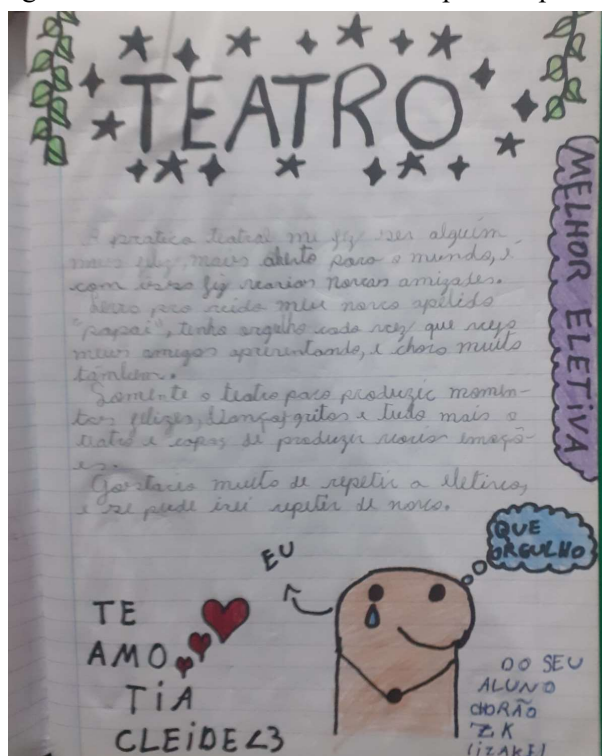 TEATRO
MELHOR ELETIVA
A pratica teatral me fez ser alguém
mais feliz, mais aberto para o mundo, e
com isso fiz varias novas amizades.
meu novo apelido
"papai", tenho orgulho cada vez que vejo
meus amigos apresentando, e choro muito
tambem.
Somente o teatro para produzir momen-
tos felizes, gritos e tudo mais o
teatro e capaz de produzir varias emoçõ-
es.
Gostaria muito de repetir a eletiva,
e se pude irei repetir de novo.
QUE
ORGULHO
EU
TE
AMO
TiA
CLEiDE<3
DO SEU
ALUNO
CHORÃO